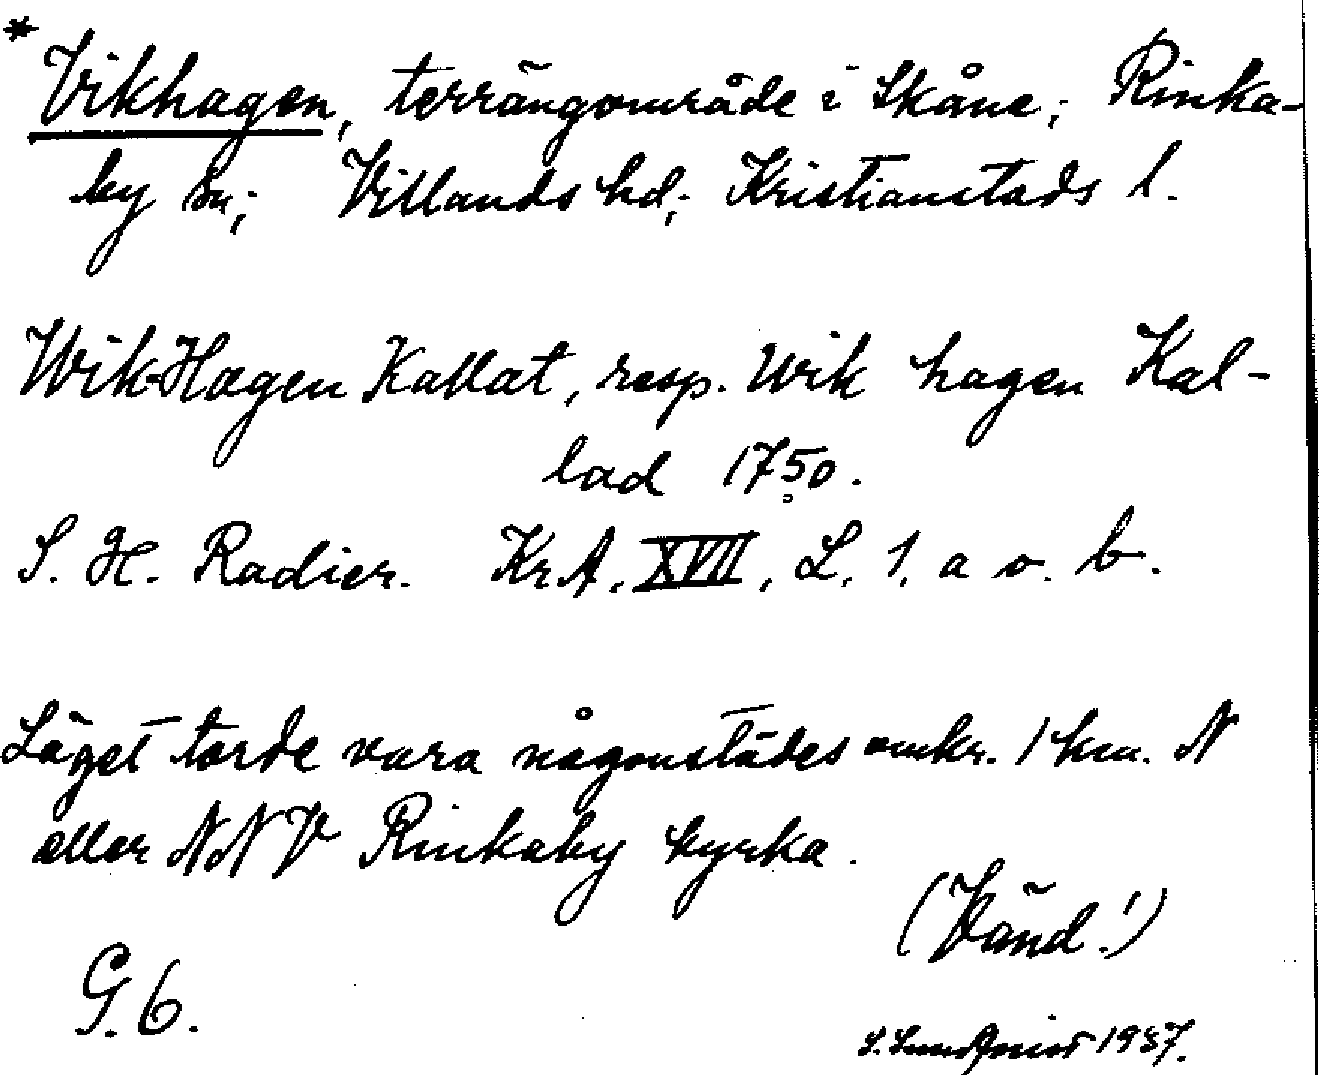 * Vikhagen, terrängområde i Skåne; Rinka-
by sn; Villands hd; Kristianstads l.
Wik-Hagen Kallat, resp. Wik hagen Kal-
lad 1750.
S. H. Radier. Kr. A. XVII, L. 1. a o. b.
Läget torde vara någonstädes omkr. 1 km. N
eller NNV Rinkaby kyrka.
(Vänd!)
G. 6.
1937.